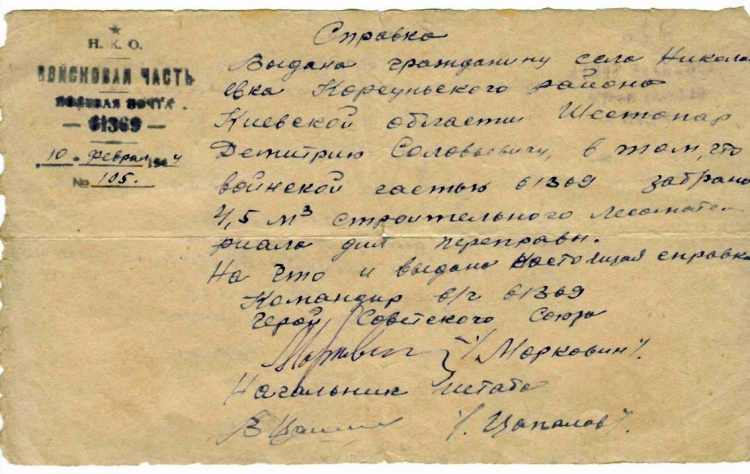 Н.К.О.
ВОЙСКОВАЯ ЧАСТЬ
ПОЛЕВАЯ ПОЧТА
— 61369 —
10 февраля 1944
№ 105.
Справка
Выдана гражданину села Никола
евка Корсуньского района
Киевской области Шестопар
Демитрию Соловьевичу, в том, что
войнской частью 61369 забрано
4,5 м³ строительного лесомате-
риала для переправы.
На что и выдана настоящая справка
Командир в/ч 61369
Герой Советского Союза
/Морковин/.
Начальник штаба
/. Цапалов/.